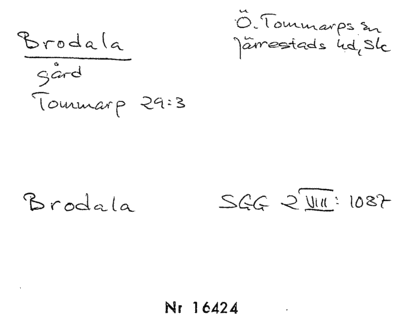 Brodala
gård
Tommarp 29:3
Ö. Tommarps sn
Järrestads hd, Sk
Brodala
SGG 2 VIII: 1087
Nr 16424